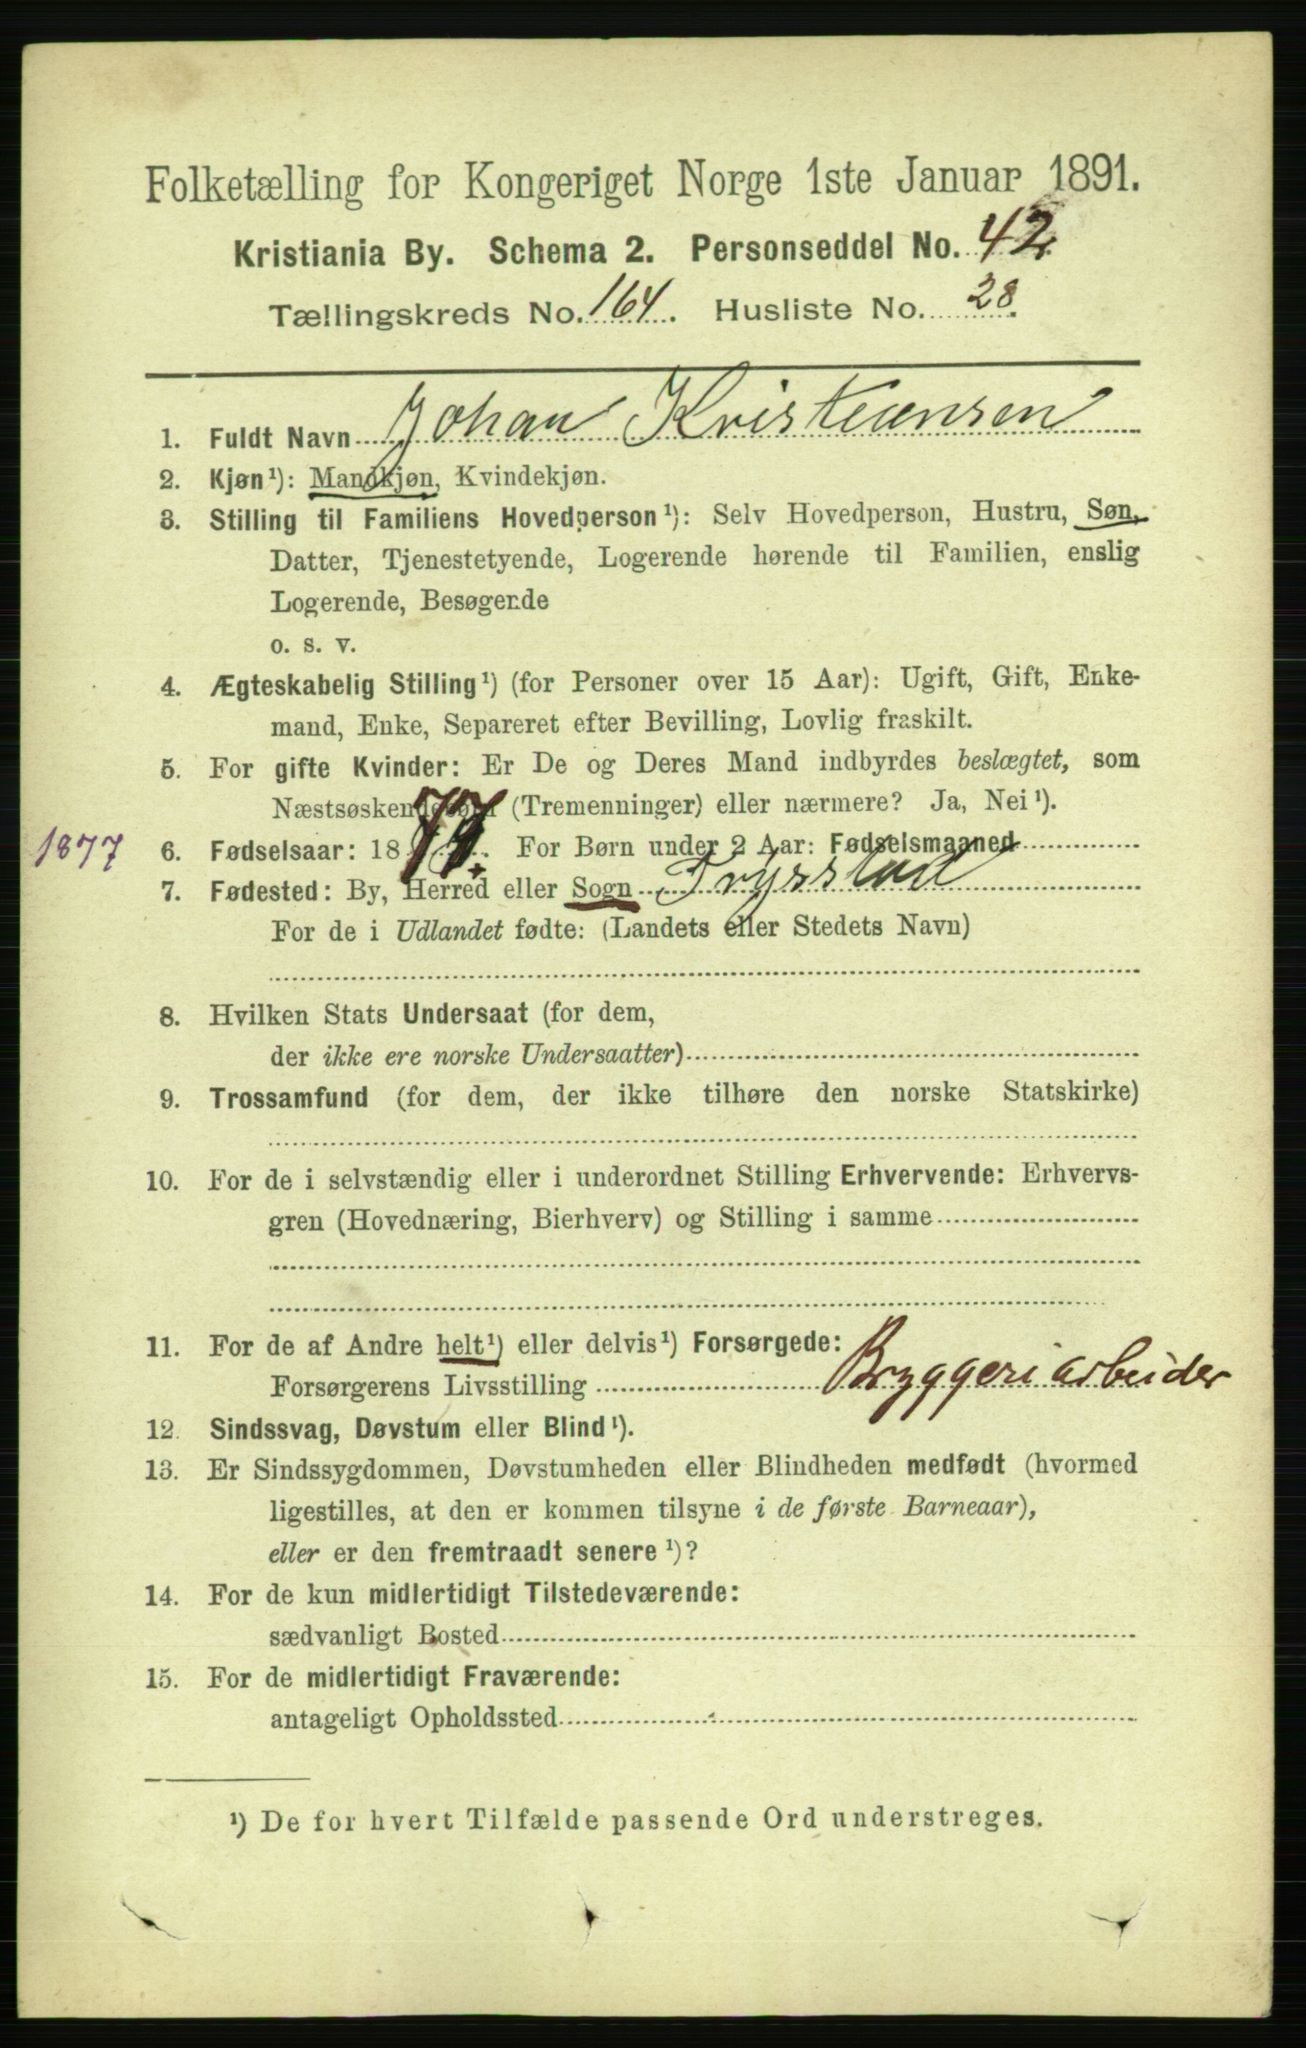 Folketælling for Kongeriget Norge 1ste Januar 1891.
Kristiania By. Schema 2. Personseddel No. 42
Tællingskreds No. 164. Husliste No. 28.
1. Fuldt Navn Johan Kristiansen
2. Kjøn¹): Mandkjøn, Kvindekjøn.
3. Stilling til Familiens Hovedperson¹): Selv Hovedperson, Hustru, Søn,
Datter, Tjenestetyende, Logerende hørende til Familien, enslig
Logerende, Besøgende
o. s. v.
4. Ægteskabelig Stilling¹) (for Personer over 15 Aar): Ugift, Gift, Enke-
mand, Enke, Separeret efter Bevilling, Lovlig fraskilt.
5. For gifte Kvinder: Er De og Deres Mand indbyrdes beslægtet, som
Næstsøskendebørn (Tremenninger) eller nærmere? Ja, Nei¹).
1877 6. Fødselsaar: 1877. For Børn under 2 Aar: Fødselsmaaned
7. Fødested: By, Herred eller Sogn Trysstad
For de i Udlandet fødte: (Landets eller Stedets Navn)
8. Hvilken Stats Undersaat (for dem,
der ikke ere norske Undersaatter)
9. Trossamfund (for dem, der ikke tilhøre den norske Statskirke)
10. For de i selvstændig eller i underordnet Stilling Erhvervende: Erhvervs-
gren (Hovednæring, Bierhverv) og Stilling i samme
11. For de af Andre helt¹) eller delvis¹) Forsørgede:
Forsørgerens Livsstilling Bryggeriarbeider
12. Sindssvag, Døvstum eller Blind¹).
13. Er Sindssygdommen, Døvstumheden eller Blindheden medfødt (hvormed
ligestilles, at den er kommen tilsyne i de første Barneaar),
eller er den fremtraadt senere¹)?
14. For de kun midlertidigt Tilstedeværende:
sædvanligt Bosted
15. For de midlertidigt Fraværende:
antageligt Opholdssted
¹) De for hvert Tilfælde passende Ord understreges.